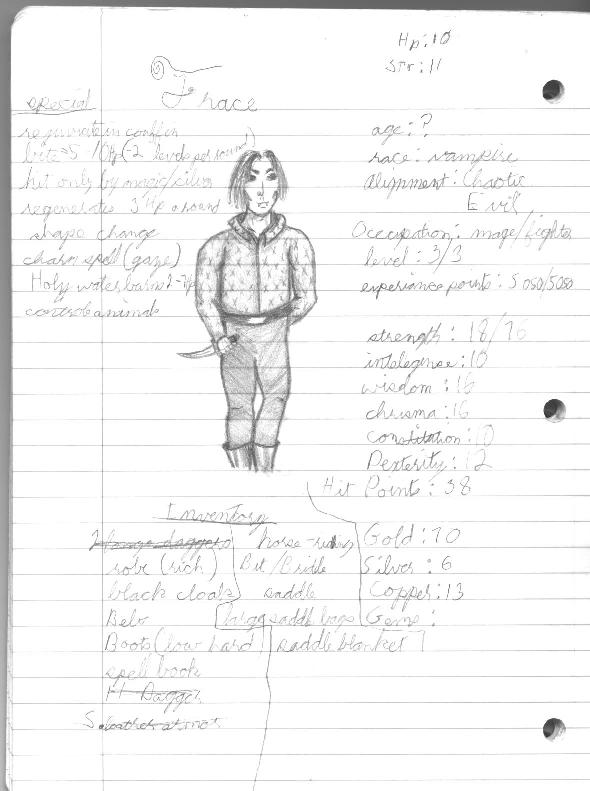 Hp: 10
Str: 11
Trace
special
regenerate in couffin
bite = 5 10Hp (-2 levels per round)
hit only by magic/silver
regenerates 3 Hp a round
shape change
charm spell (gaze)
Holy water burns 2-7
controle animals
age: ?
race: vampire
alignment: Chaotic
Evil
Occupation: mage/fighter
level: 3/3
experiance points: 5050/5050
strength: 18/76
intelegense: 10
wisdom: 16
chrisma: 16
constitation: 10
Dexterity: 12
Hit Points: 38
Inventory
2 large daggers
robe (rich)
black cloak
Belt
Boots (low hard)
spell book
Dagger
S. leather
horse-riding
Bit/Bridle
saddle
large saddle bags
saddle blanket
Gold: 70
Silver: 6
Copper: 13
Gems: